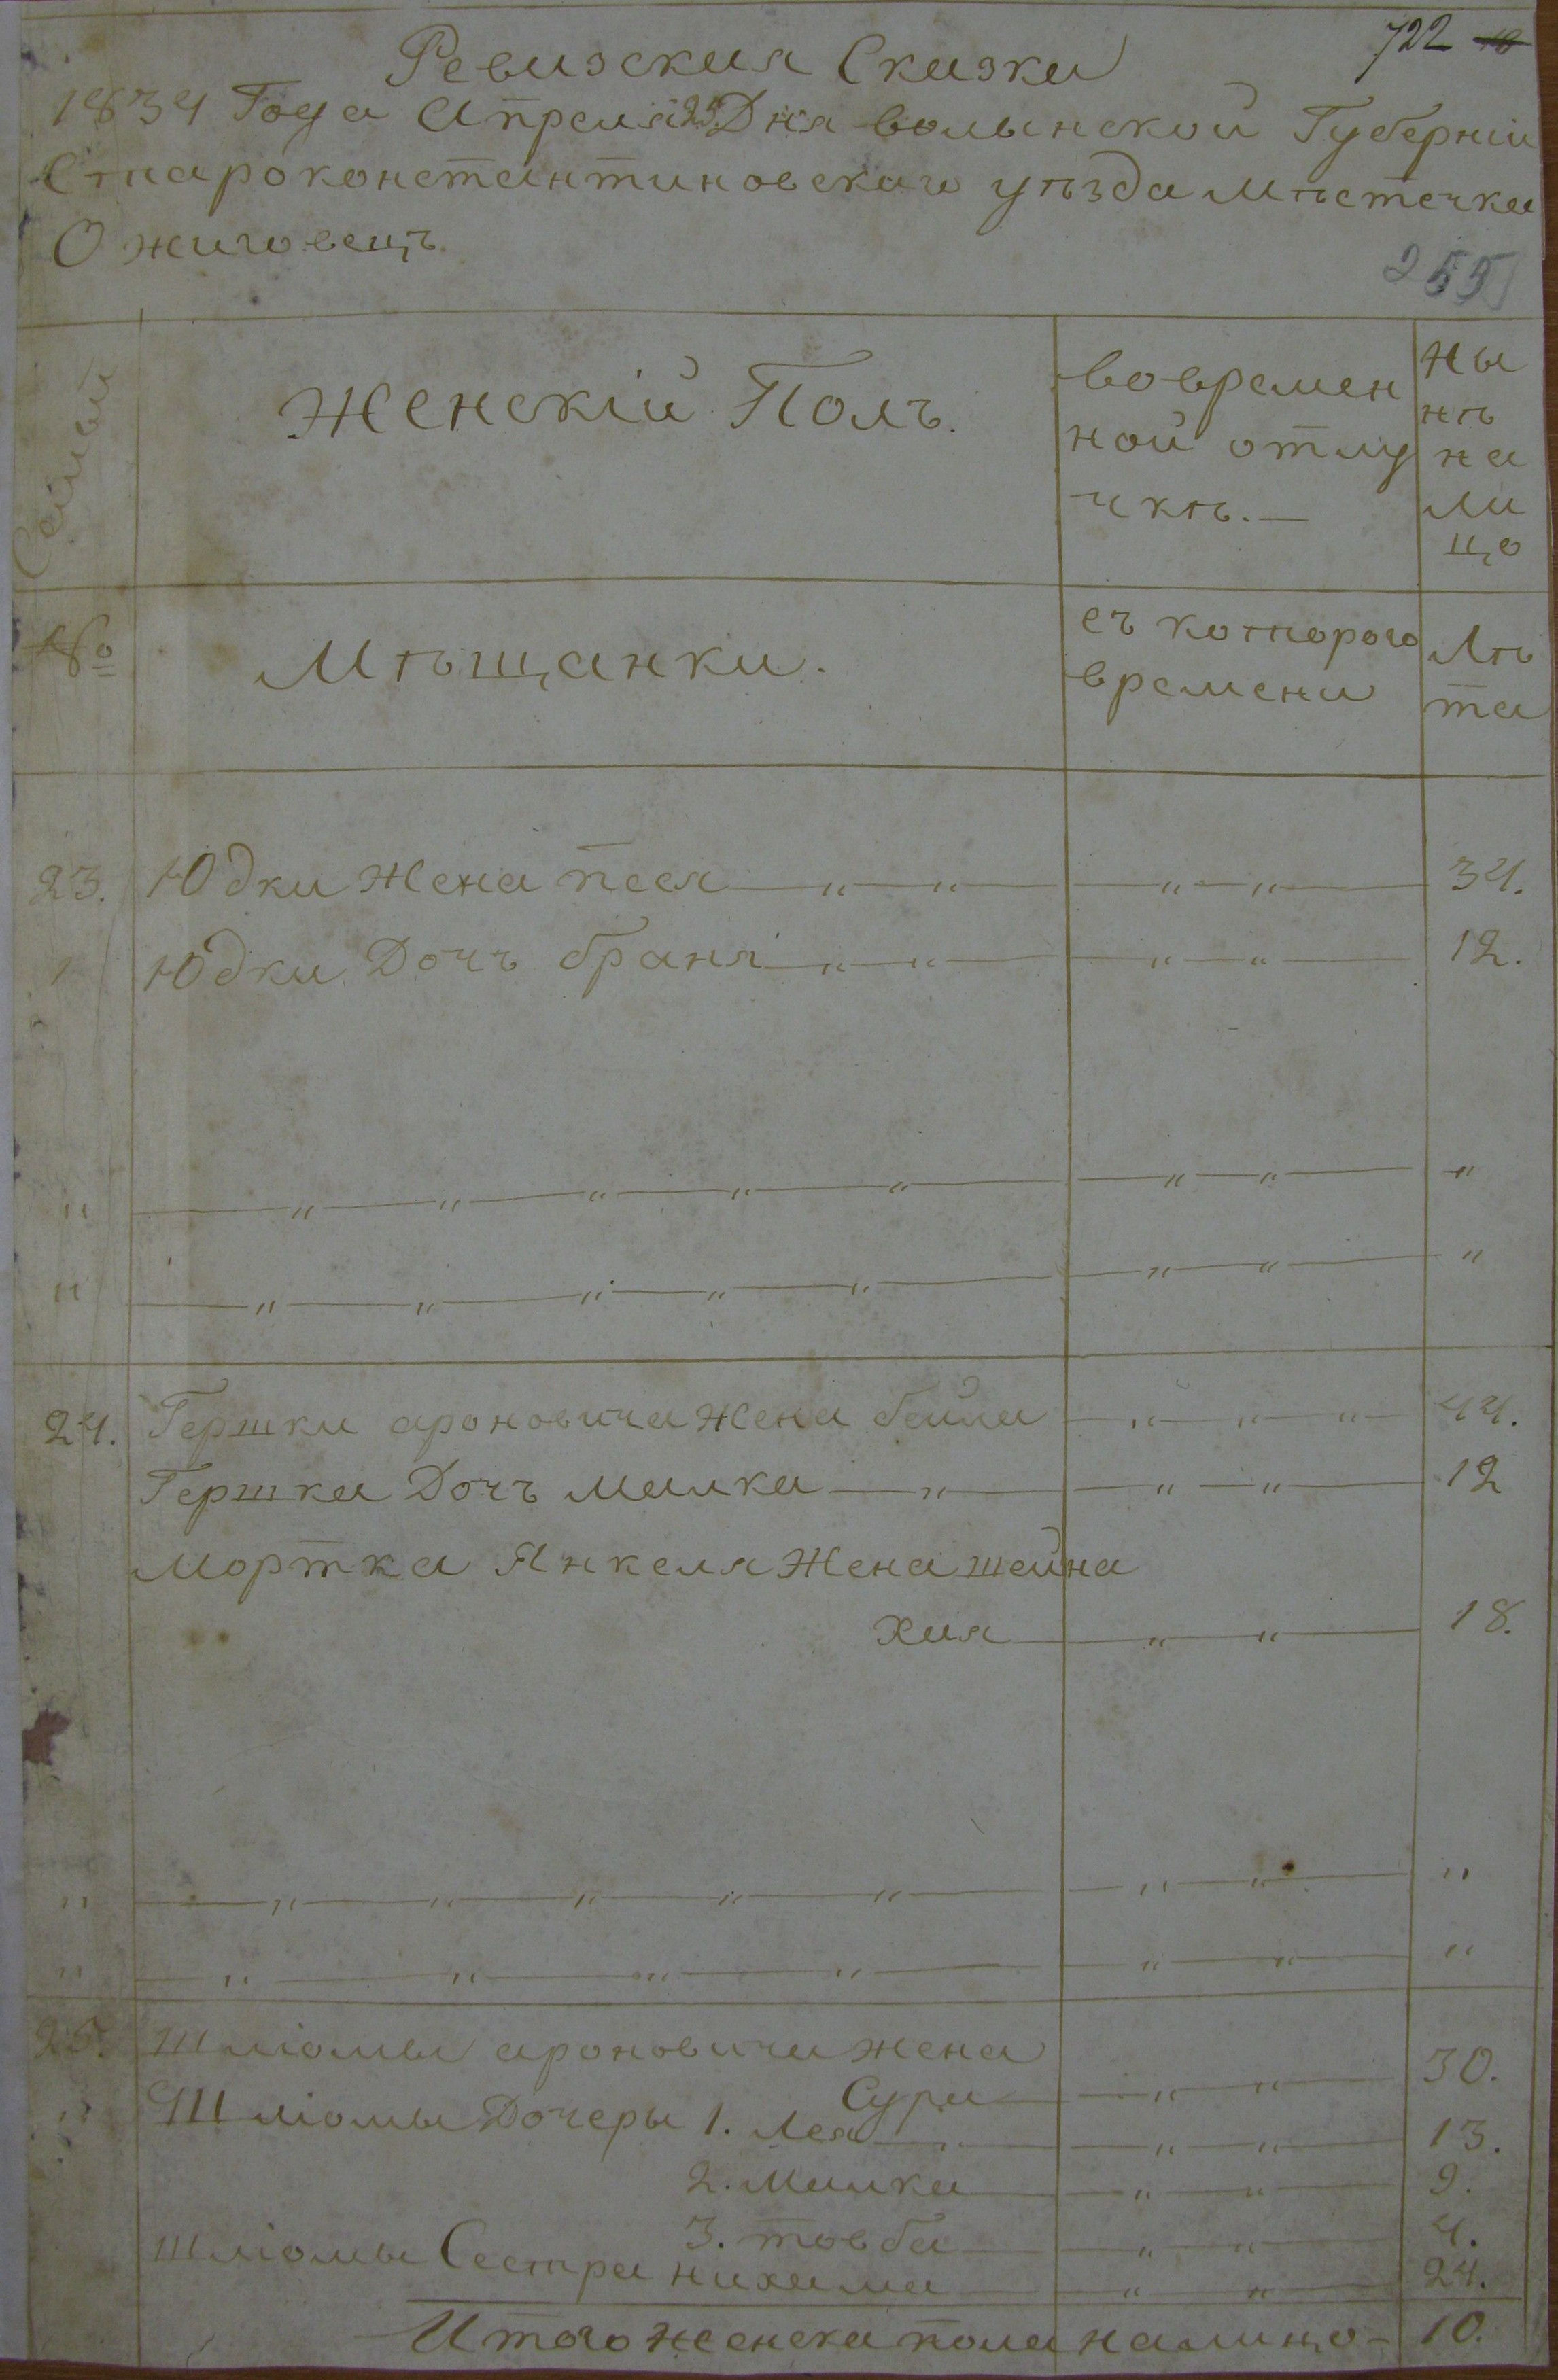 722 10
Ревизския Сказки
1834 Года Апреля 25 Дня волынской Губерніи
Староконстантиновскаго уѣзда мѣстечка
Ожиговецъ
255
Семьи
Женскій Полъ.
во времен
ной отлу
чкѣ.—
ны
нѣ
на
ли
цо
№
Мѣщанки.
съ которого
времени
Лѣ
та
23. Юдки Жена песя — „ — „ — — „ — „ — 34.
1 Юдки Дочъ браня — „ — „ — — „ — „ — 12.
„ — „ — „ — „ — „ — „ — — „ — „ — „
„ — „ — „ — „ — „ — „ — — „ — „ — „
24. Гершки ароновича Жена бейла — „ — „ — „ — 44.
Гершка Дочъ малка — „ — — „ — „ — 12
Мортка Янкеля Жена шейна
хая — „ — „ — 18.
„ — „ — „ — „ — „ — „ — — „ — „ — „
„ — „ — „ — „ — „ — — „ — „ — „
25. Шліомы ароновича жена
Сура — „ — „ — 30.
Шліомы Дочеры 1. Лея — „ — — „ — „ — 13.
2. Малка — „ — „ — 9.
3. товба — „ — „ — 4.
Шліомы Сестра нихама — „ — „ — 24.
Итого женска пола налицо - 10.